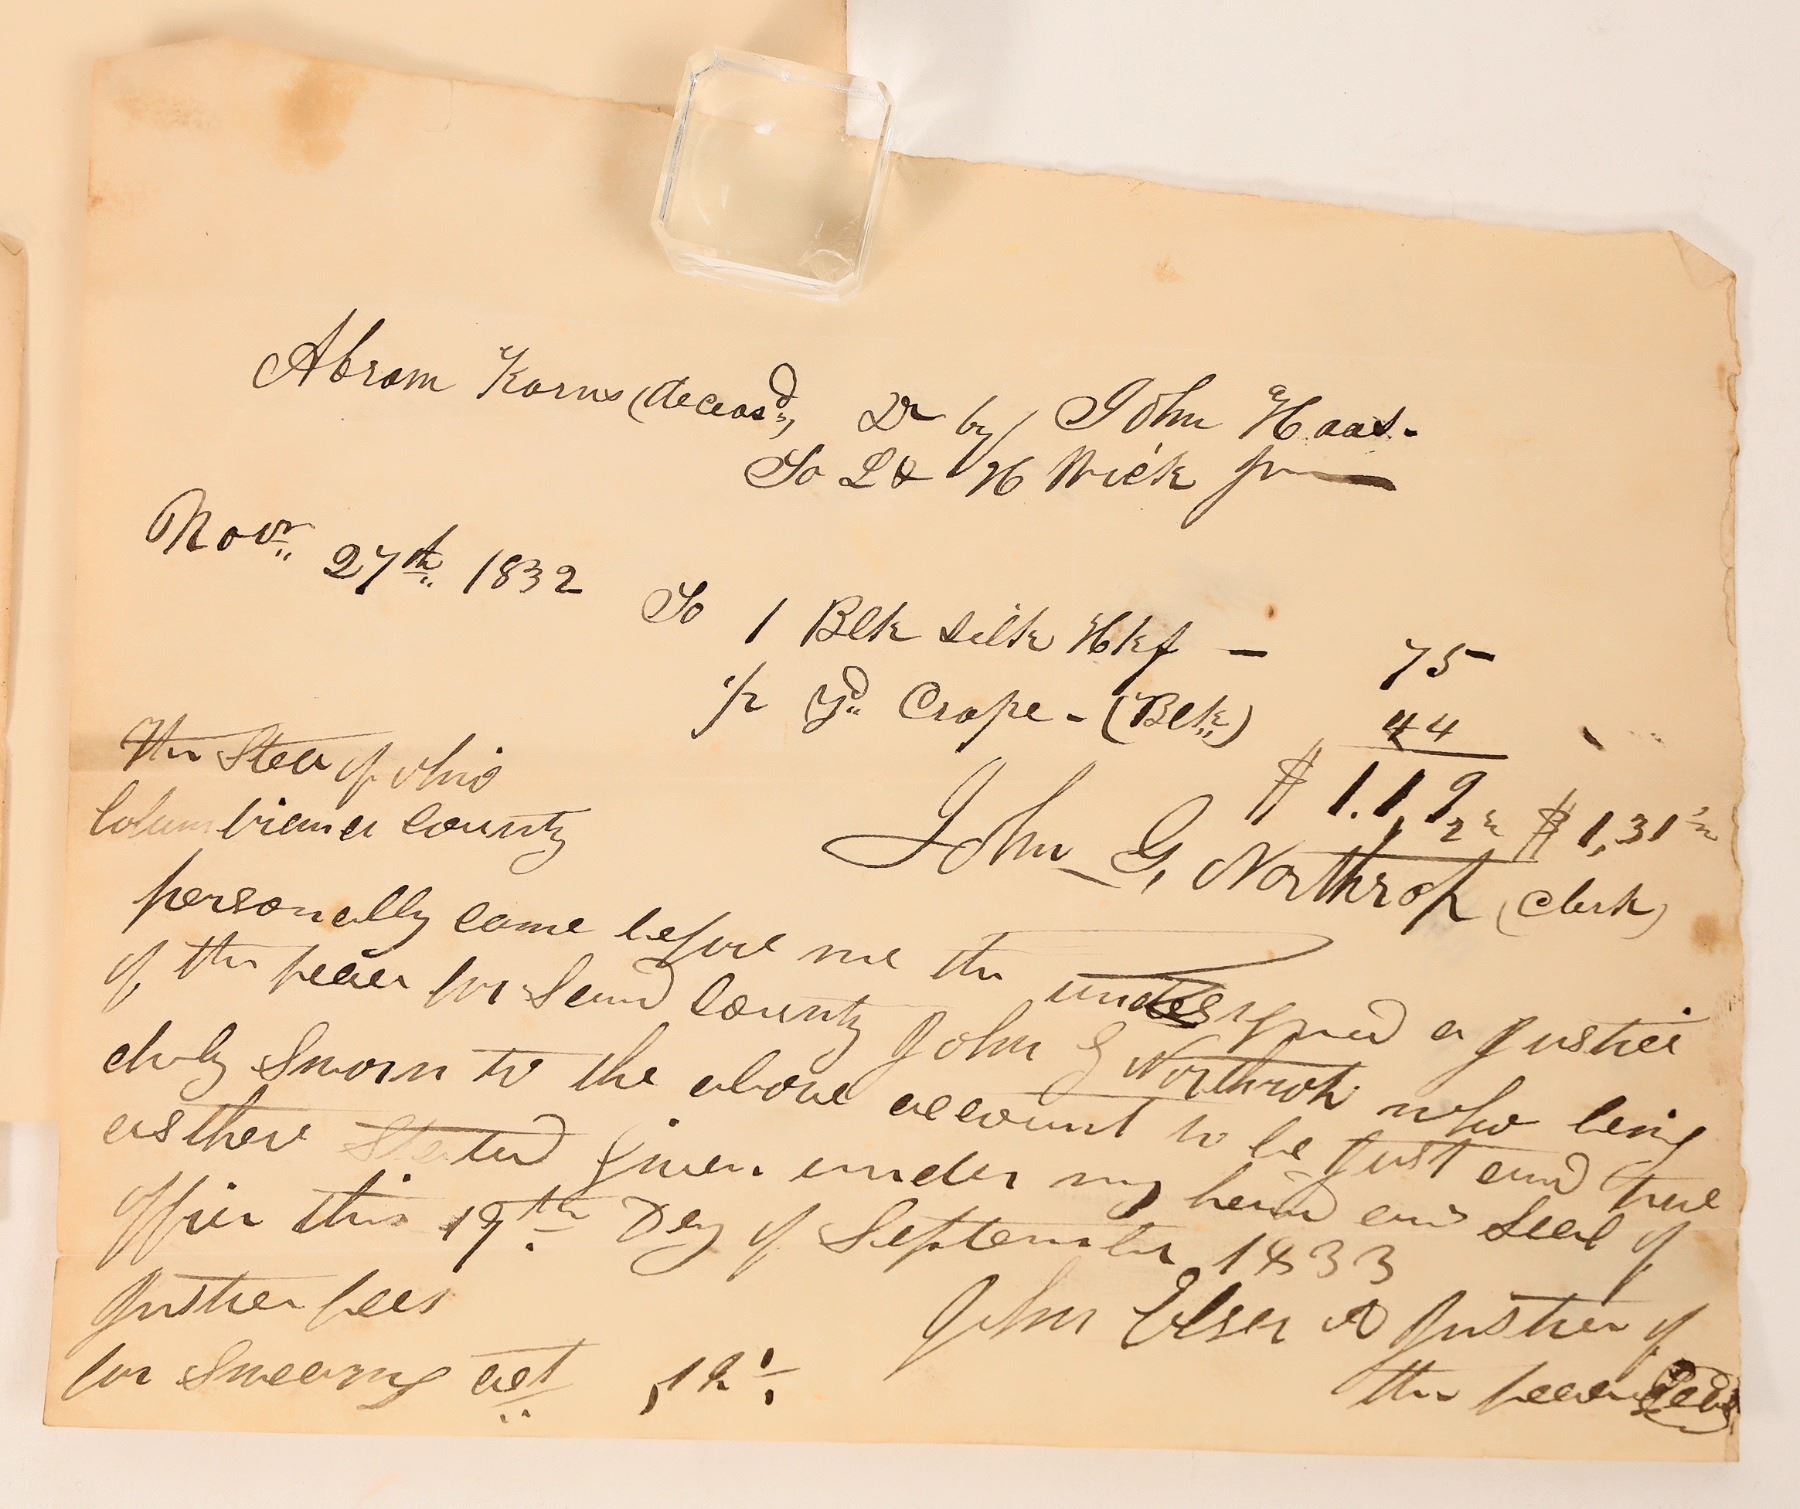 Abram Korns (deceasd,, Dr by John Haas.
To L & H Wick Jr
Novr. 27th. 1832
To 1 Blk silk Hkf — 75
1/2 Yd. Crape - (Blk.) 44
$ 1.19 $ 1,31 1/2
John G, Northrop (Clerk)
The State of Ohio
Columbiana County
personally came before me the undersigned a Justice
of the peace for Said County John G Northrop who being
duly Sworn to the above account to be Just and true
as there Stated Given under my hand and Seal of
Office this 19th. Day of September 1833
John Elser A Justice of
the peace Seal
Justice fees
for Swearing act ,12 1/2